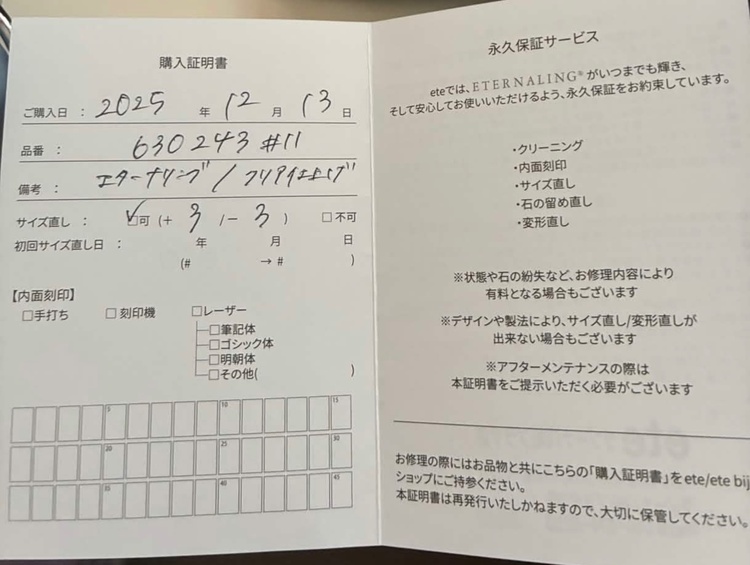 購入証明書
ご購入日 : 2025 年 12 月 13 日
品番 : 630243 #11
備考 : エターナリング /
サイズ直し : ☑可 (+ 3 /− 3 ) □不可
初回サイズ直し日 : 年 月 日
(# → # )
【内面刻印】
□手打ち □刻印機 □レーザー
□筆記体
□ゴシック体
□明朝体
□その他( )
5 10 15
20 25 30
35 40 45
永久保証サービス
eteでは、ETERNALING®がいつまでも輝き、
そして安心してお使いいただけるよう、永久保証をお約束しています。
・クリーニング
・内面刻印
・サイズ直し
・石の留め直し
・変形直し
※状態や石の紛失など、お修理内容により
有料となる場合もございます
※デザインや製法により、サイズ直し/変形直しが
出来ない場合もございます
※アフターメンテナンスの際は
本証明書をご提示いただく必要がございます
お修理の際にはお品物と共にこちらの「購入証明書」をete/ete bij
ショップにご持参ください。
本証明書は再発行いたしかねますので、大切に保管してください。